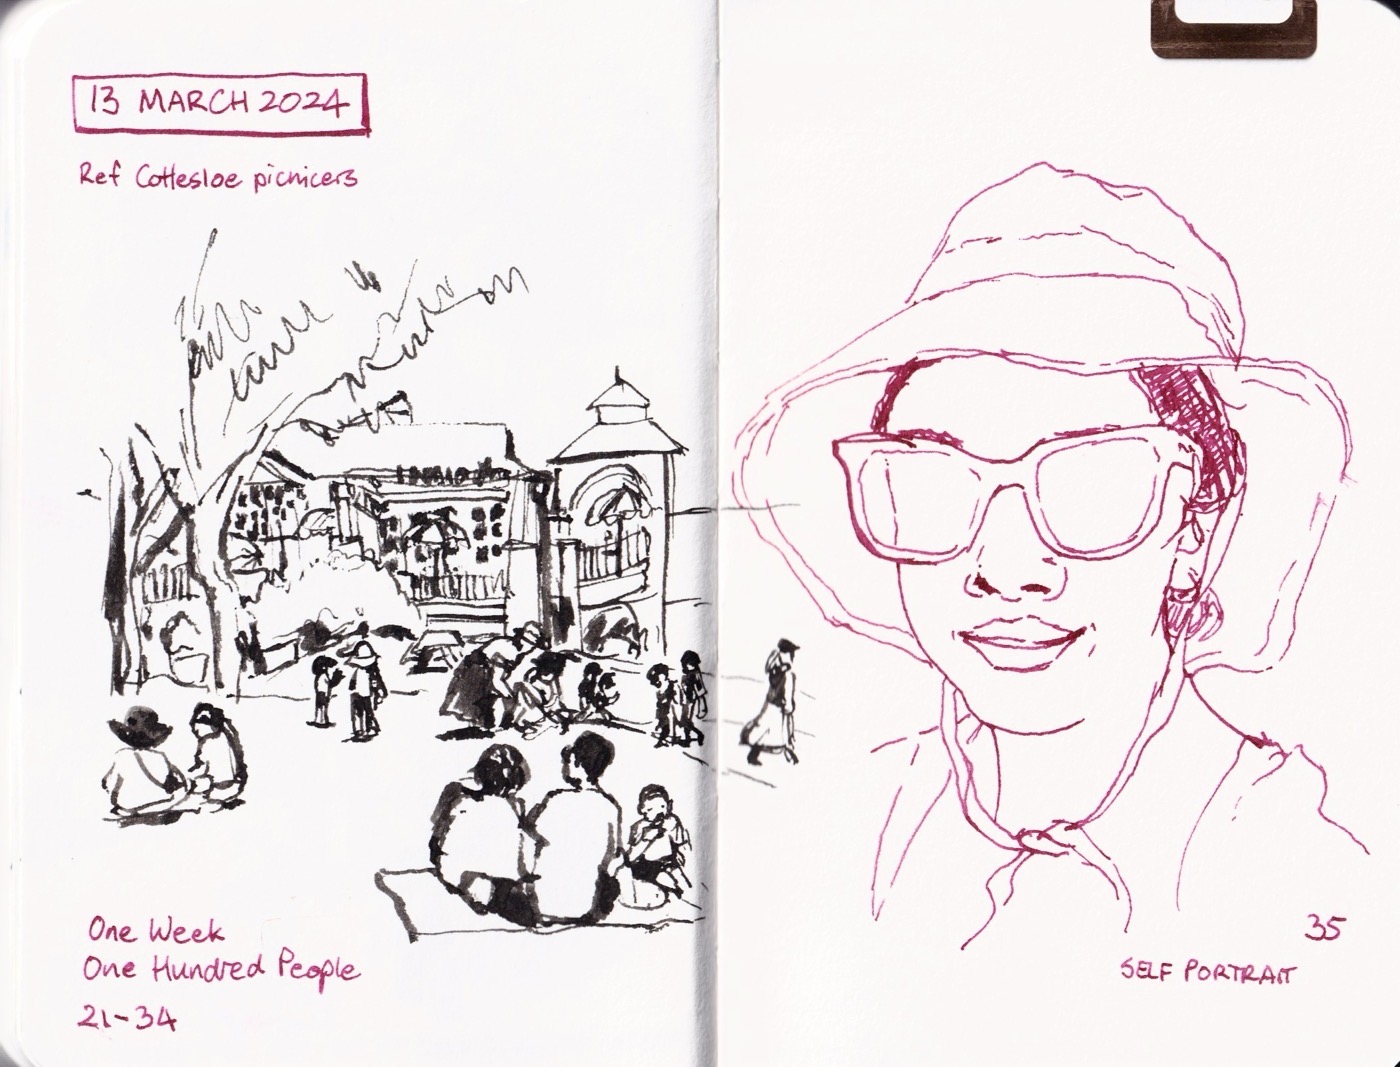 13 MARCH 2024
Ref Cottesloe picnicers
One Week
One Hundred People
21-34
35
SELF PORTRAIT